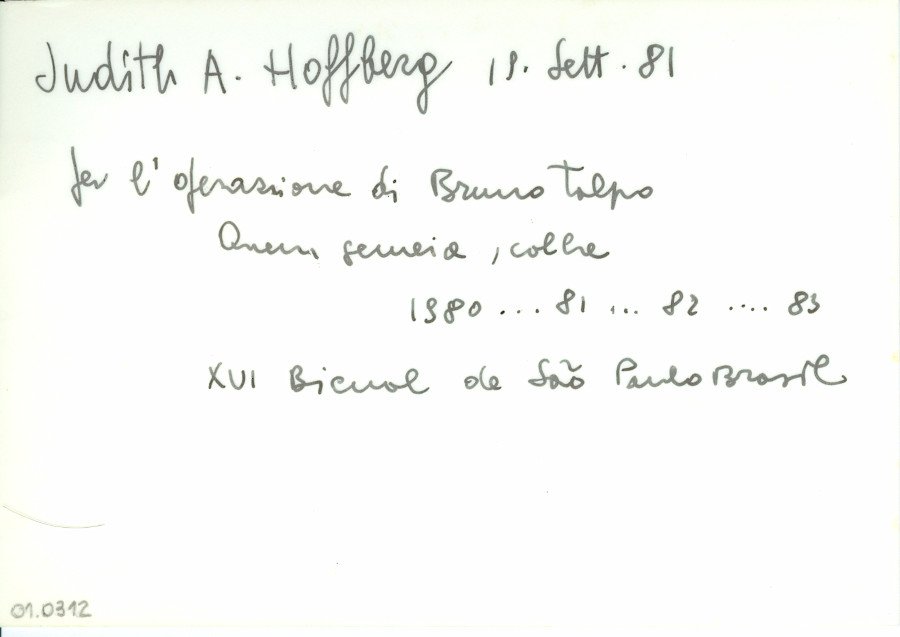 Judith A. Hoffberg 19. Sett. 81
per l'operazione di Bruno Talpo
Quem semeia, colhe
1980 ... 81 ... 82 .... 83
XVI Bienal de São Paulo Brasil
01.0312